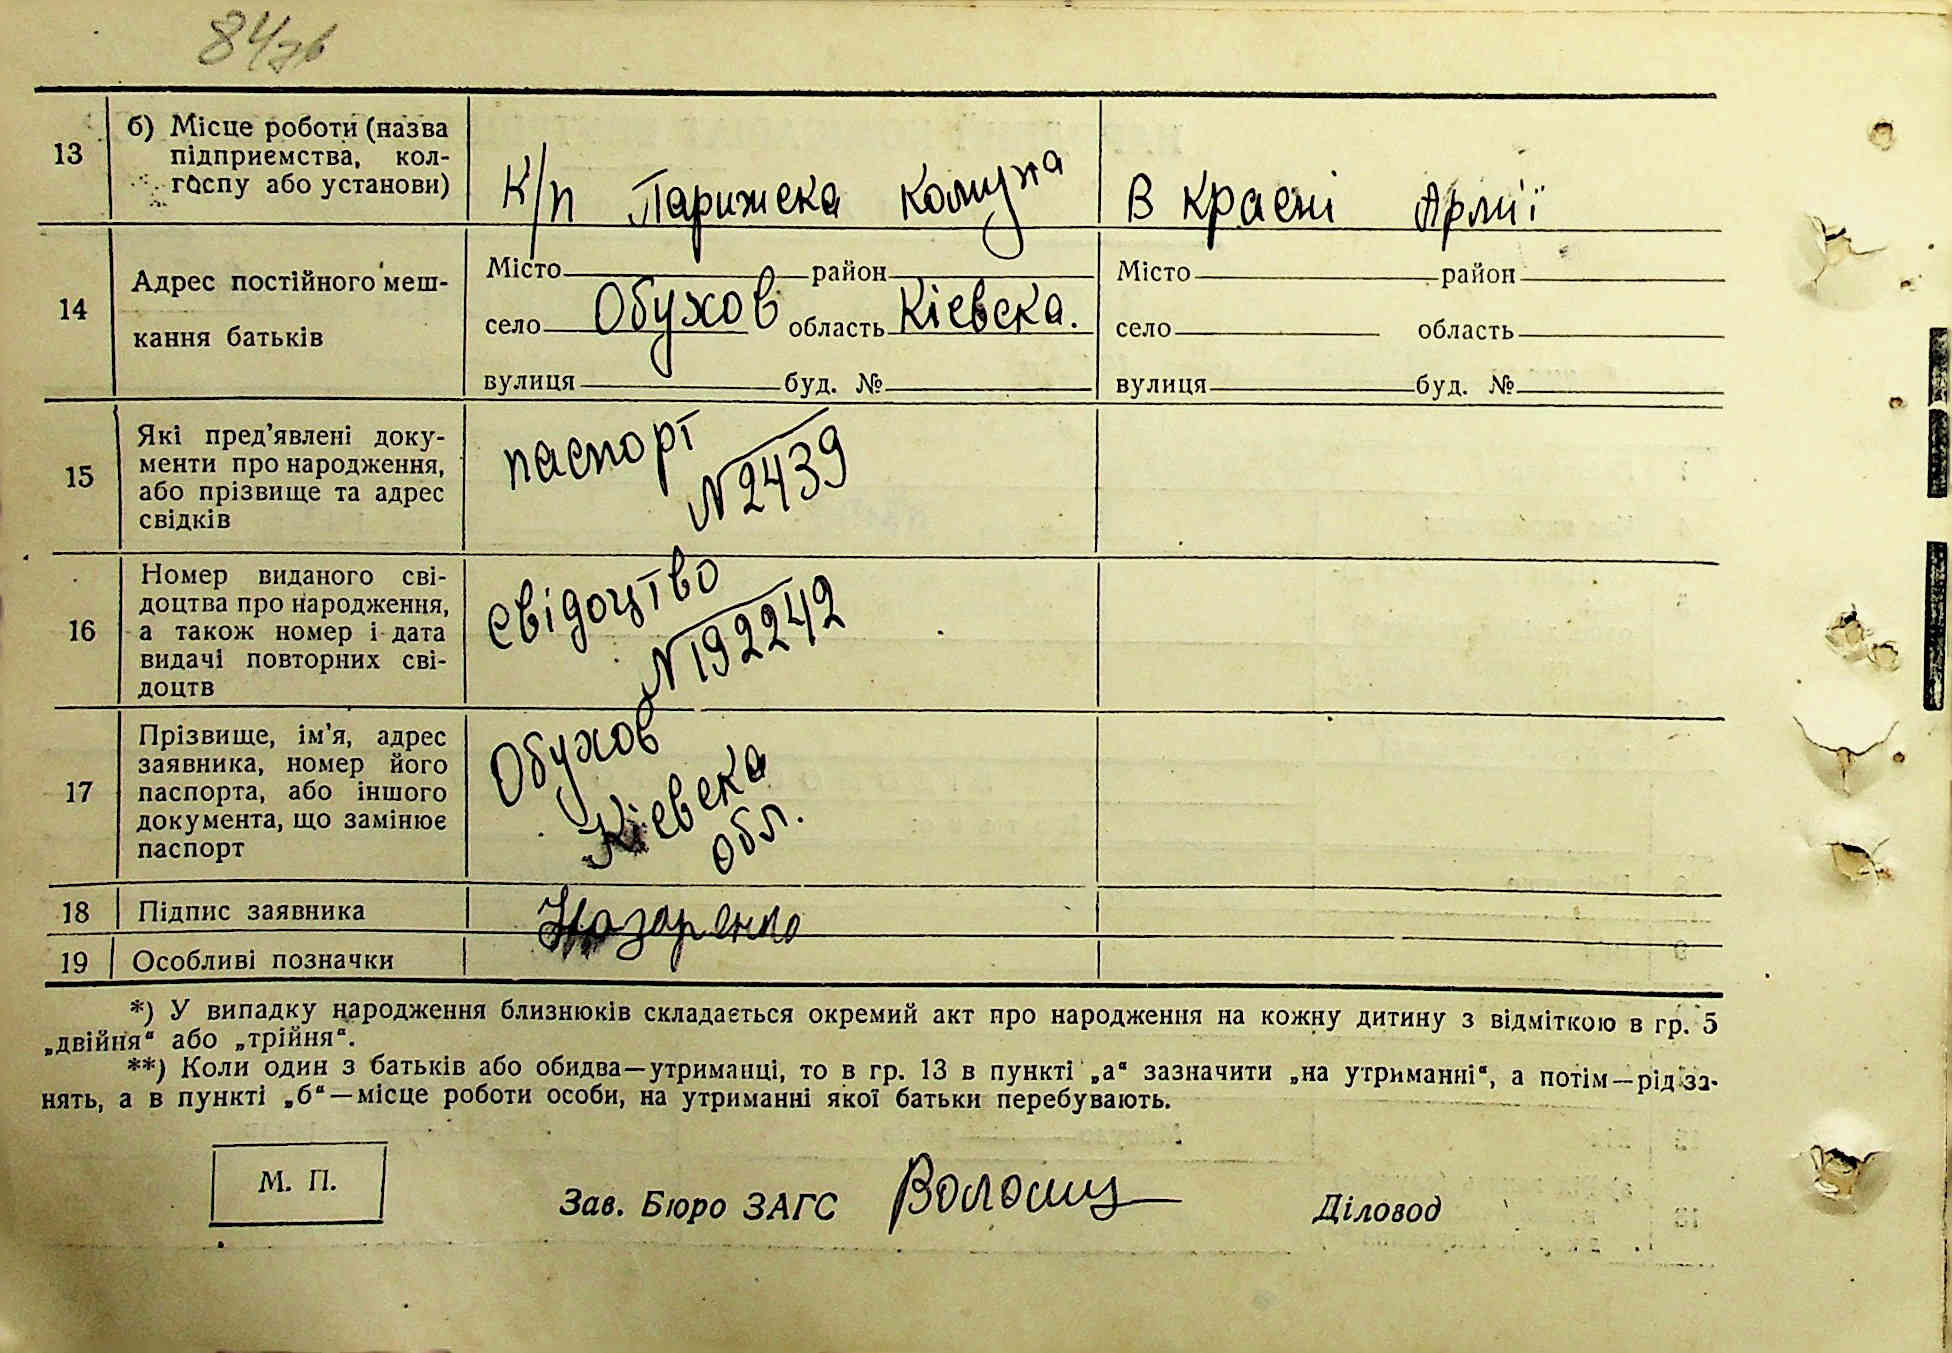 84зв
13
б) Місце роботи (назва
підприємства, кол-
госпу або установи)
К/п Парижска комуна
В Красні Армії
14
Адрес постійного меш-
кання батьків
Місто район
село Обухов область Кіевска.
вулиця буд. №
Місто район
село область
вулиця буд. №
15
Які пред'явлені доку-
менти про народження,
або прізвище та адрес
свідків
паспорт
№2439
16
Номер виданого сві-
доцтва про народження,
а також номер і дата
видачі повторних сві-
доцтв
свідоцтво
№192242
17
Прізвище, ім'я, адрес
заявника, номер його
паспорта, або іншого
документа, що замінює
паспорт
Обухов
Кіевска
обл.
18
Підпис заявника
Назаренко
19
Особливі позначки
*) У випадку народження близнюків складається окремий акт про народження на кожну дитину з відміткою в гр. 5
„двійня“ або „трійня“.
**) Коли один з батьків або обидва—утриманці, то в гр. 13 в пункті „а“ зазначити „на утриманні“, а потім—рід за-
нять, а в пункті „б“—місце роботи особи, на утриманні якої батьки перебувають.
М. П.
Зав. Бюро ЗАГС Волошу
Діловод